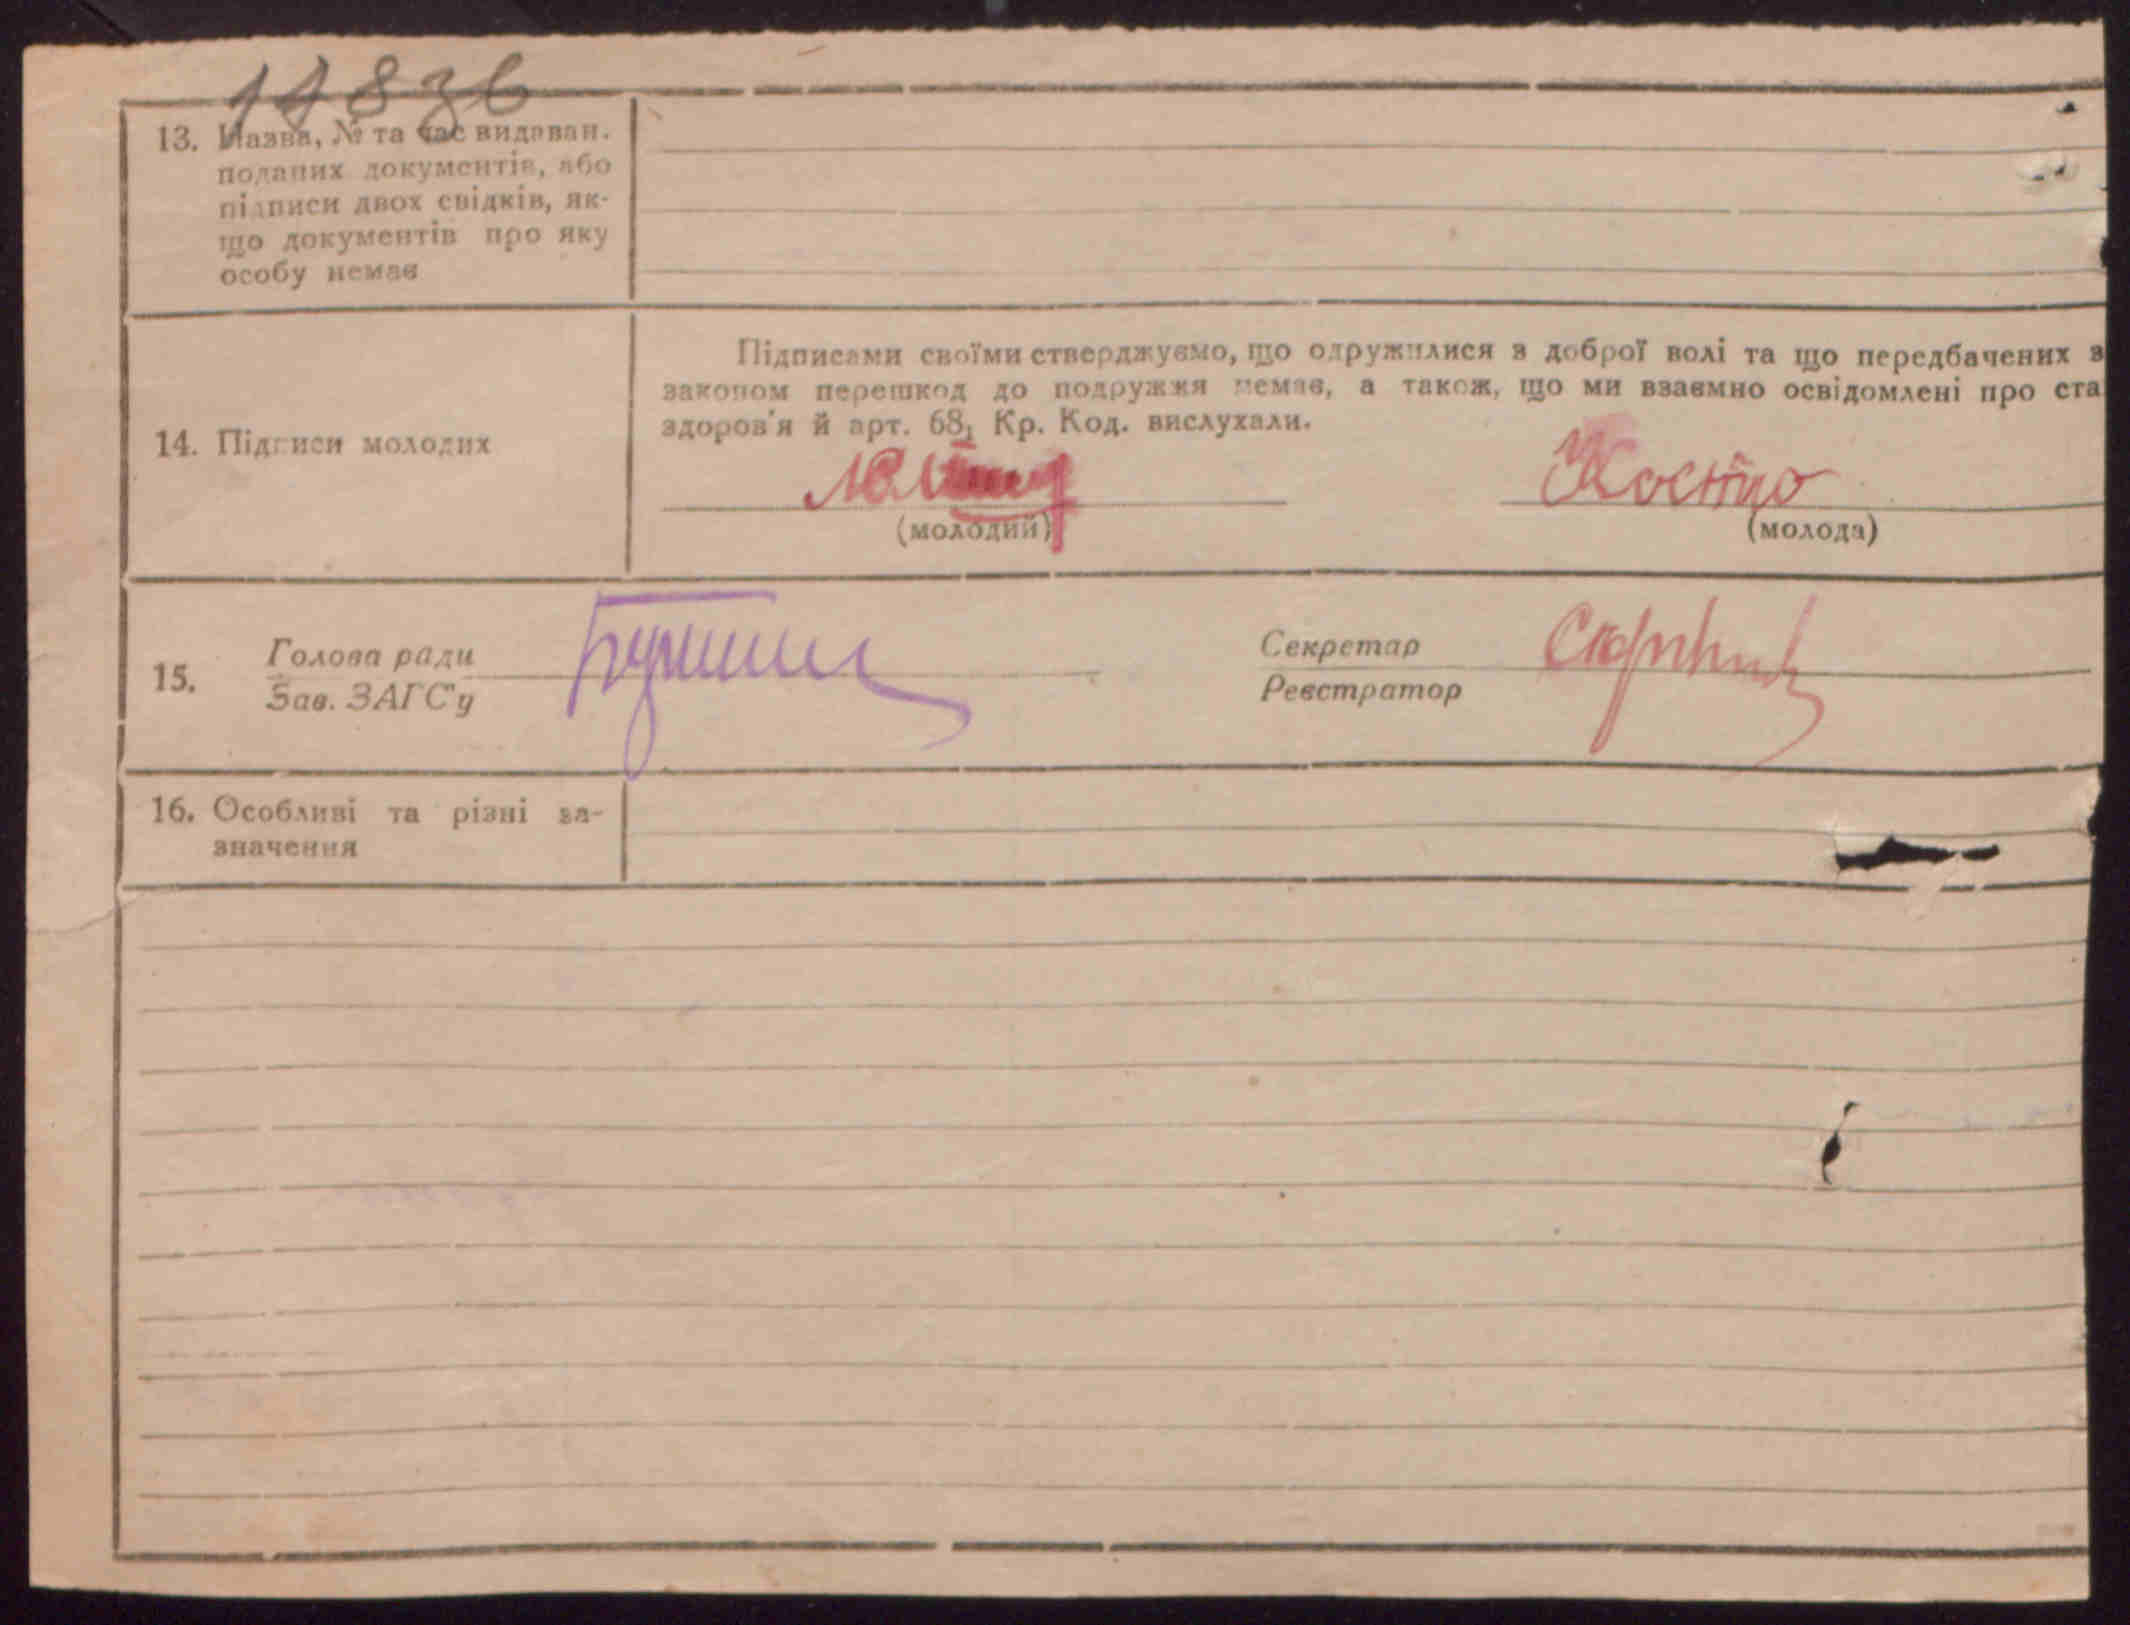 13. Назва, № та час видаван.
поданих документів, або
підписи двох свідків, як-
що документів про яку
особу немає
Підписами своїми стверджуємо, що одружилися з доброї волі та що передбачених з
законом перешкод до подружжя немає, а також, що ми взаємно освідомлені про ста
здоров'я й арт. 68₁ Кр. Код. вислухали.
14. Підписи молодих
(молодий)
(молода)
15.
Голова ради
Зав. ЗАГС'у
Секретар
Реєстратор
16. Особливі та різні за-
значення